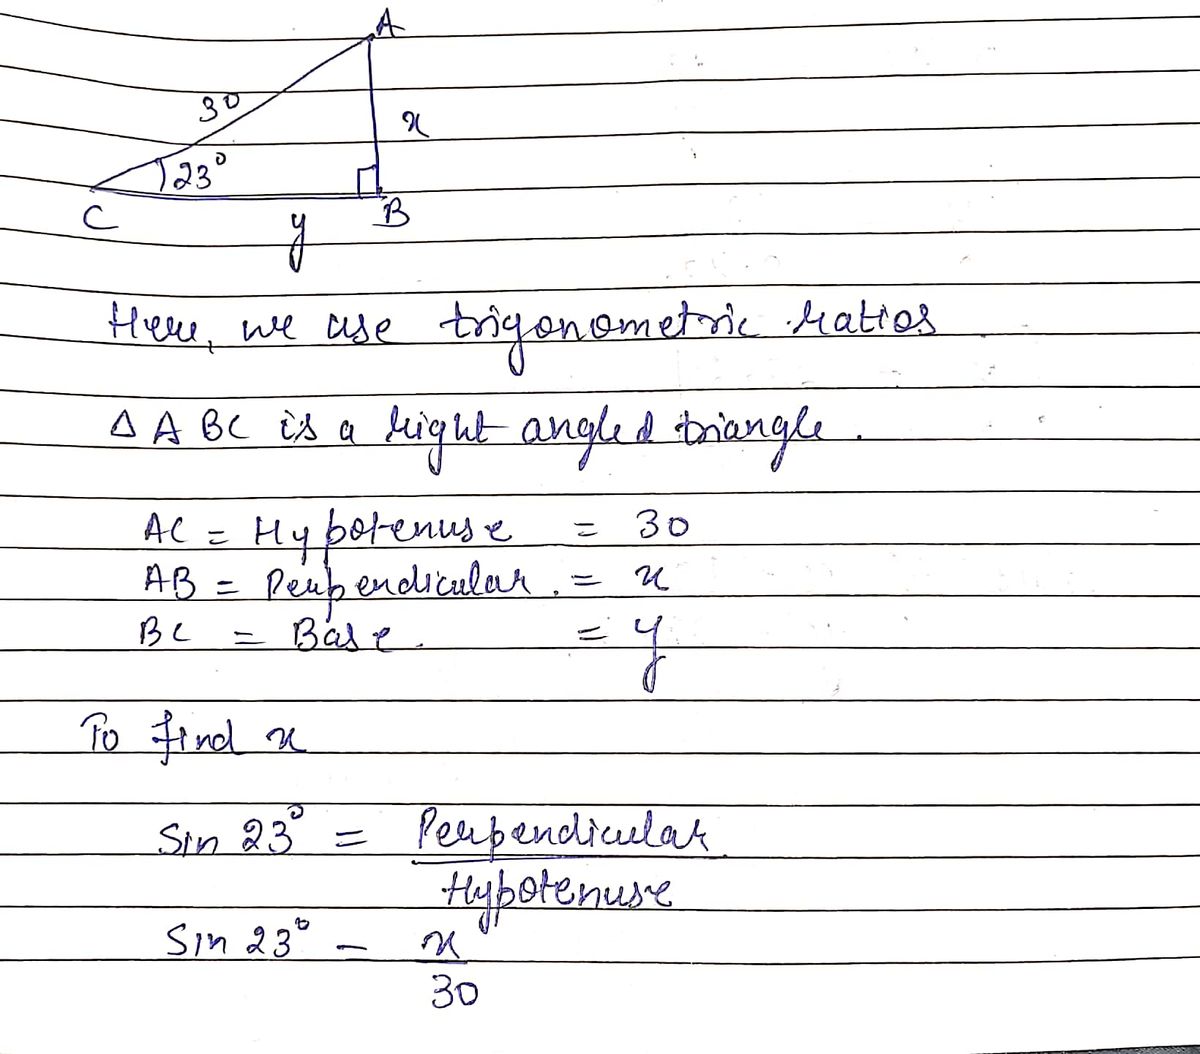 A
30
x
23°
C
y
B
Here, we use trigonometric ratios
Δ ABC is a right angled triangle.
AC = Hypotenuse = 30
AB = Perpendicular. = x
BC = Base. = y
To find x
Sin 23° = Perpendicular
Hypotenuse
Sin 23° = x
30